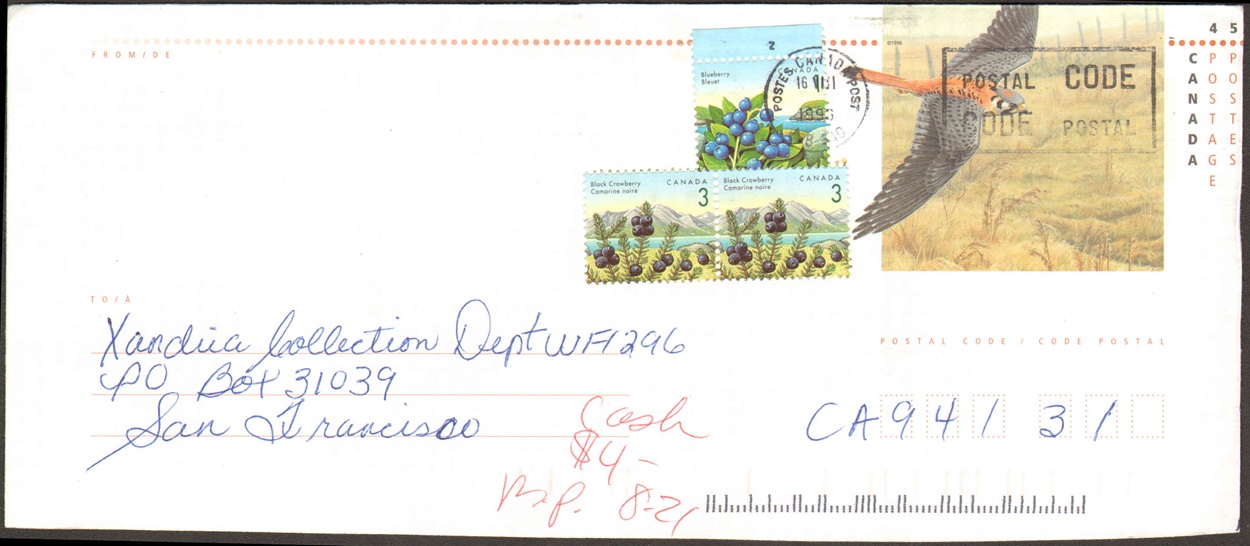 FROM/DE
45
CANADA
POSTAGE
POSTES
©1996
2
Blueberry
Bleuet
CANADA
POSTES CANADA POST
16 VIII
POSTAL CODE
CODE POSTAL
Black Crowberry
Camarine noire
CANADA
3
Black Crowberry
Camarine noire
CANADA
3
TO/À
Xandria Collection Dept WF1296
PO Box 31039
San Francisco
POSTAL CODE / CODE POSTAL
CA 94131
Cash
$4-
8-21